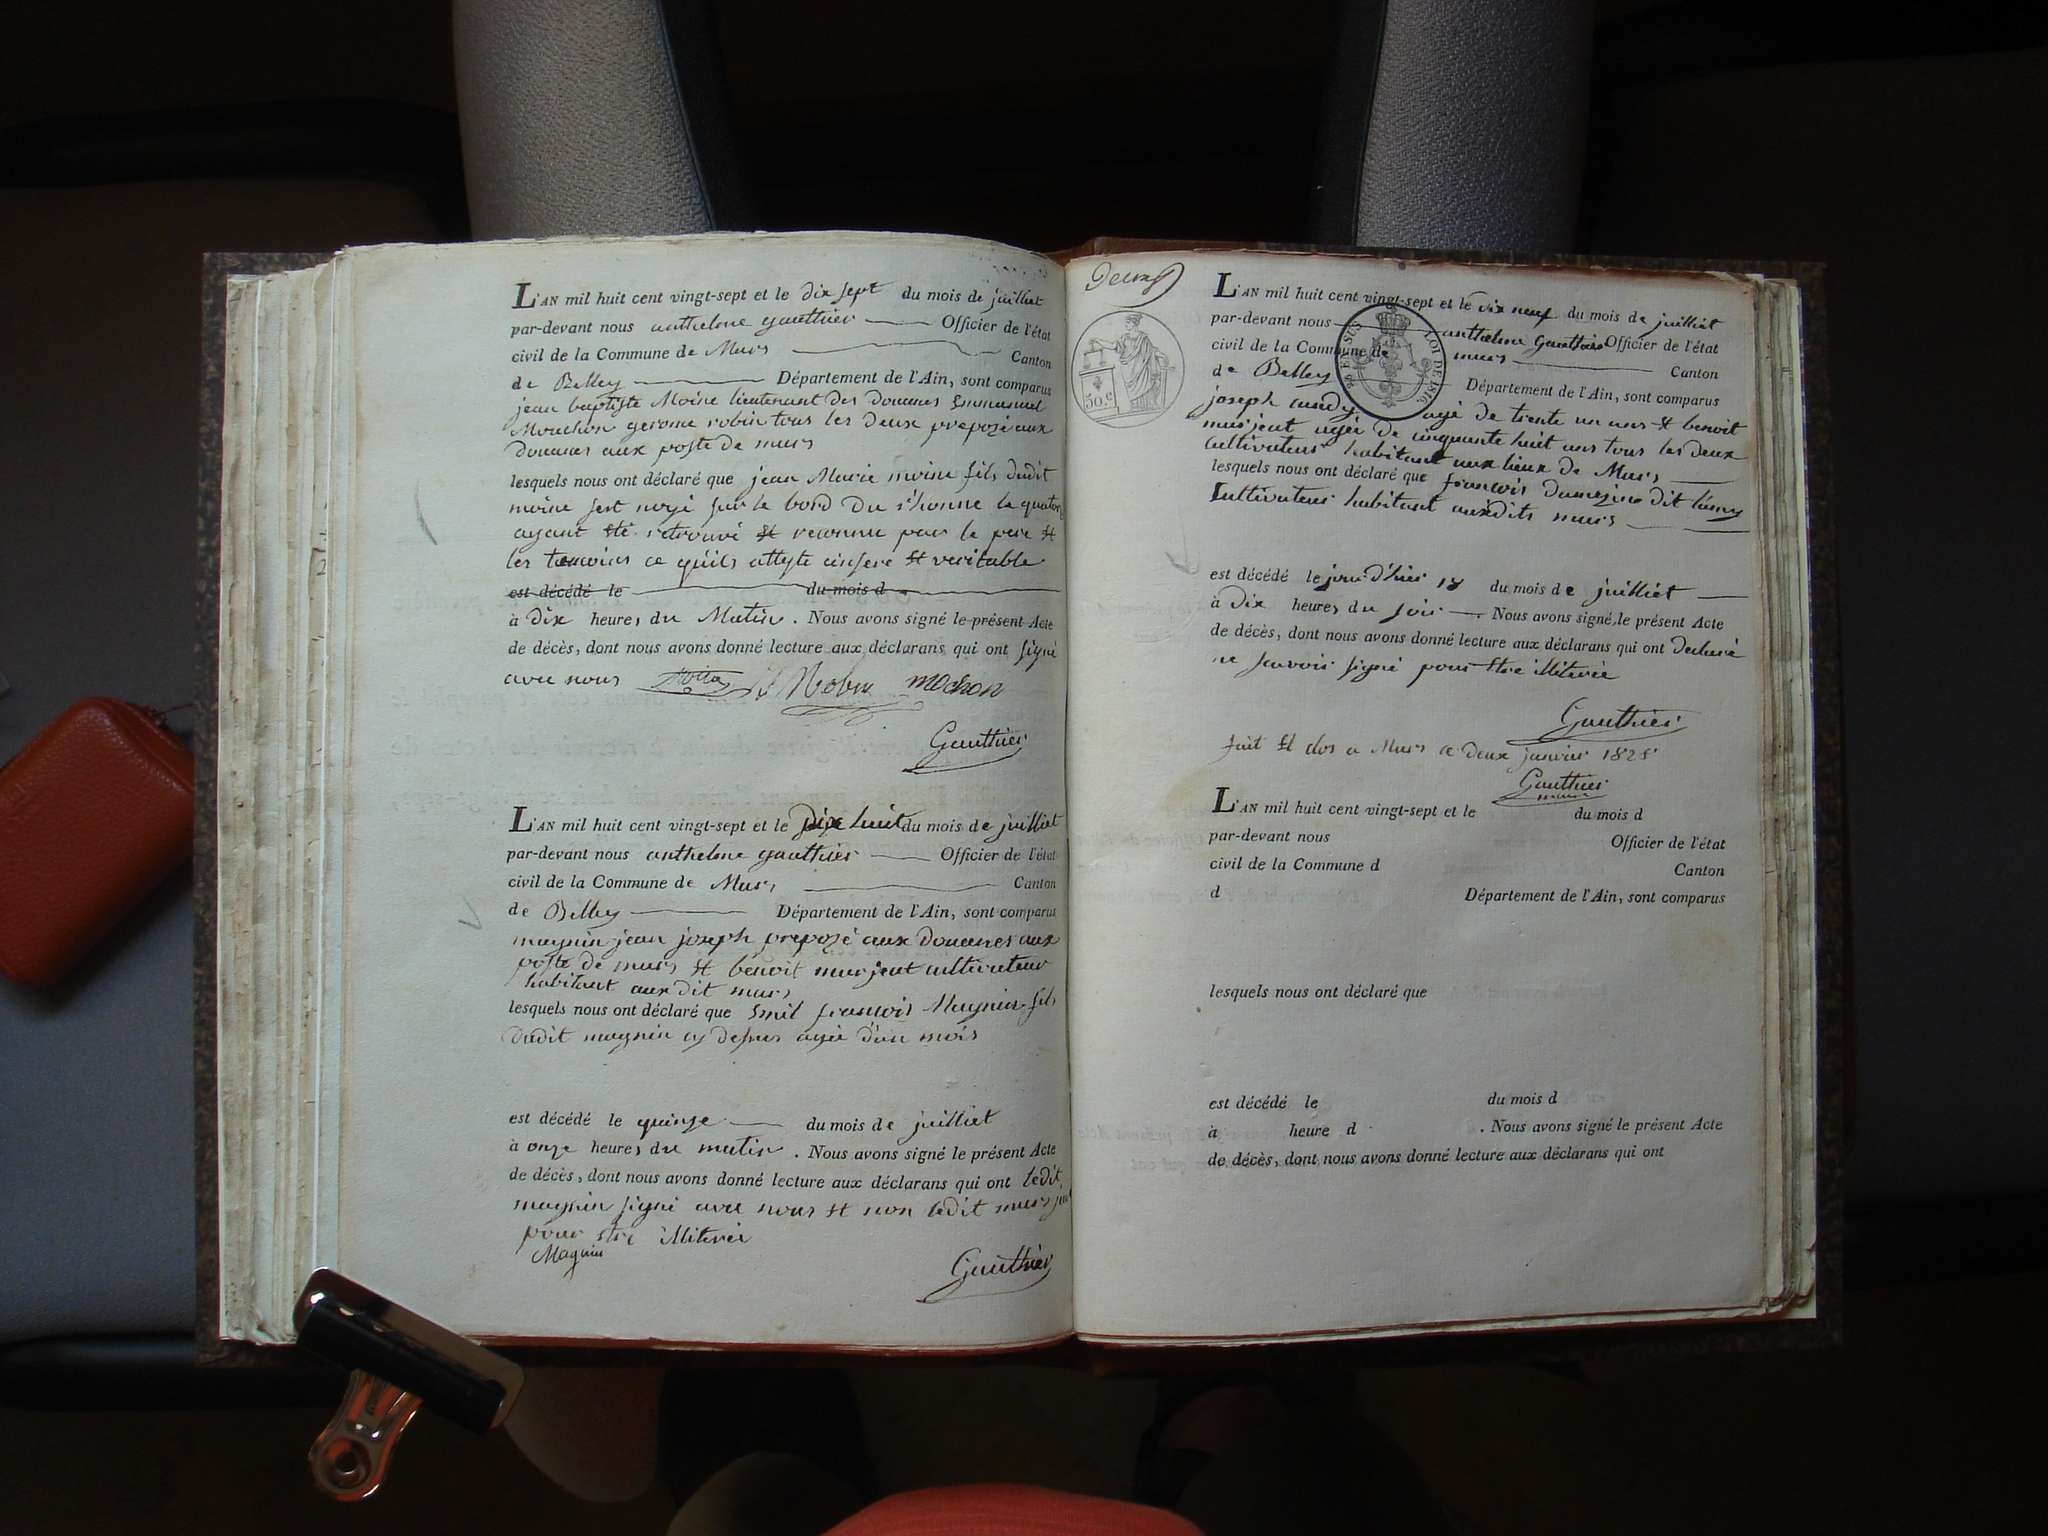 L'AN mil huit cent vingt-sept et le dix sept du mois de juilliet
par-devant nous anthelme gauthier Officier de l'état
civil de la Commune de Murs Canton
de Belley Département de l'Ain, sont comparus
jean baptiste Moine lieutenant des douanes Emmanuel
Mouchon gerome robin tous les deux preposé aux
douanes aux poste de murs
lesquels nous ont déclaré que jean Marie moine fils dudit
moine sest noyé sur le bord du rhonne le
ayant été retrouvé et reconnu par le pere et
les temoins ce quils atteste et veritable
est décédé le du mois d
à dix heures du Matin. Nous avons signé le présent Acte
de décès, dont nous avons donné lecture aux déclarans qui ont signé
avec nous Robin mochon
Gauthier
L'AN mil huit cent vingt-sept et le dix huit du mois de juilliet
par-devant nous anthelme gauthier Officier de l'état
civil de la Commune de Murs Canton
de Belley Département de l'Ain, sont comparus
magnin jean joseph preposé aux douanes aux
poste de murs et benoit murjeut cultivateur
habitant auxdit murs
lesquels nous ont déclaré que Emil francois Magnin fils
dudit magnin cy desus agée d'un mois
est décédé le quinze du mois de juilliet
à onze heures du matin. Nous avons signé le présent Acte
de décès, dont nous avons donné lecture aux déclarans qui ont ledit
magnin signé avec nous et non ledit
pour etre illiteréé
Magnin
Gauthier
50.c
L'AN mil huit cent vingt-sept et le dix neuf du mois de juilliet
par-devant nous anthelme Gauthier Officier de l'état
civil de la Commune de murs Canton
de Belley Département de l'Ain, sont comparus
joseph agé de trente un ans et benoit
murjeut agée de cinquante huit ans tous les deux
cultivateurs habitant aux lieux de Murs
lesquels nous ont déclaré que francois dit
Cultivateur habitant auxdits murs
est décédé le jour d'hier 18 du mois de juilliet
à dix heures du soir. Nous avons signé le présent Acte
de décès, dont nous avons donné lecture aux déclarans qui ont declaré
ne savoir signé pour etre illiterée
Gauthier
fait et clos a Murs ce deux janvier 1828
Gauthier
maire
L'AN mil huit cent vingt-sept et le du mois d
par-devant nous Officier de l'état
civil de la Commune d Canton
d Département de l'Ain, sont comparus
lesquels nous ont déclaré que
est décédé le du mois d
à heure d. Nous avons signé le présent Acte
de décès, dont nous avons donné lecture aux déclarans qui ont